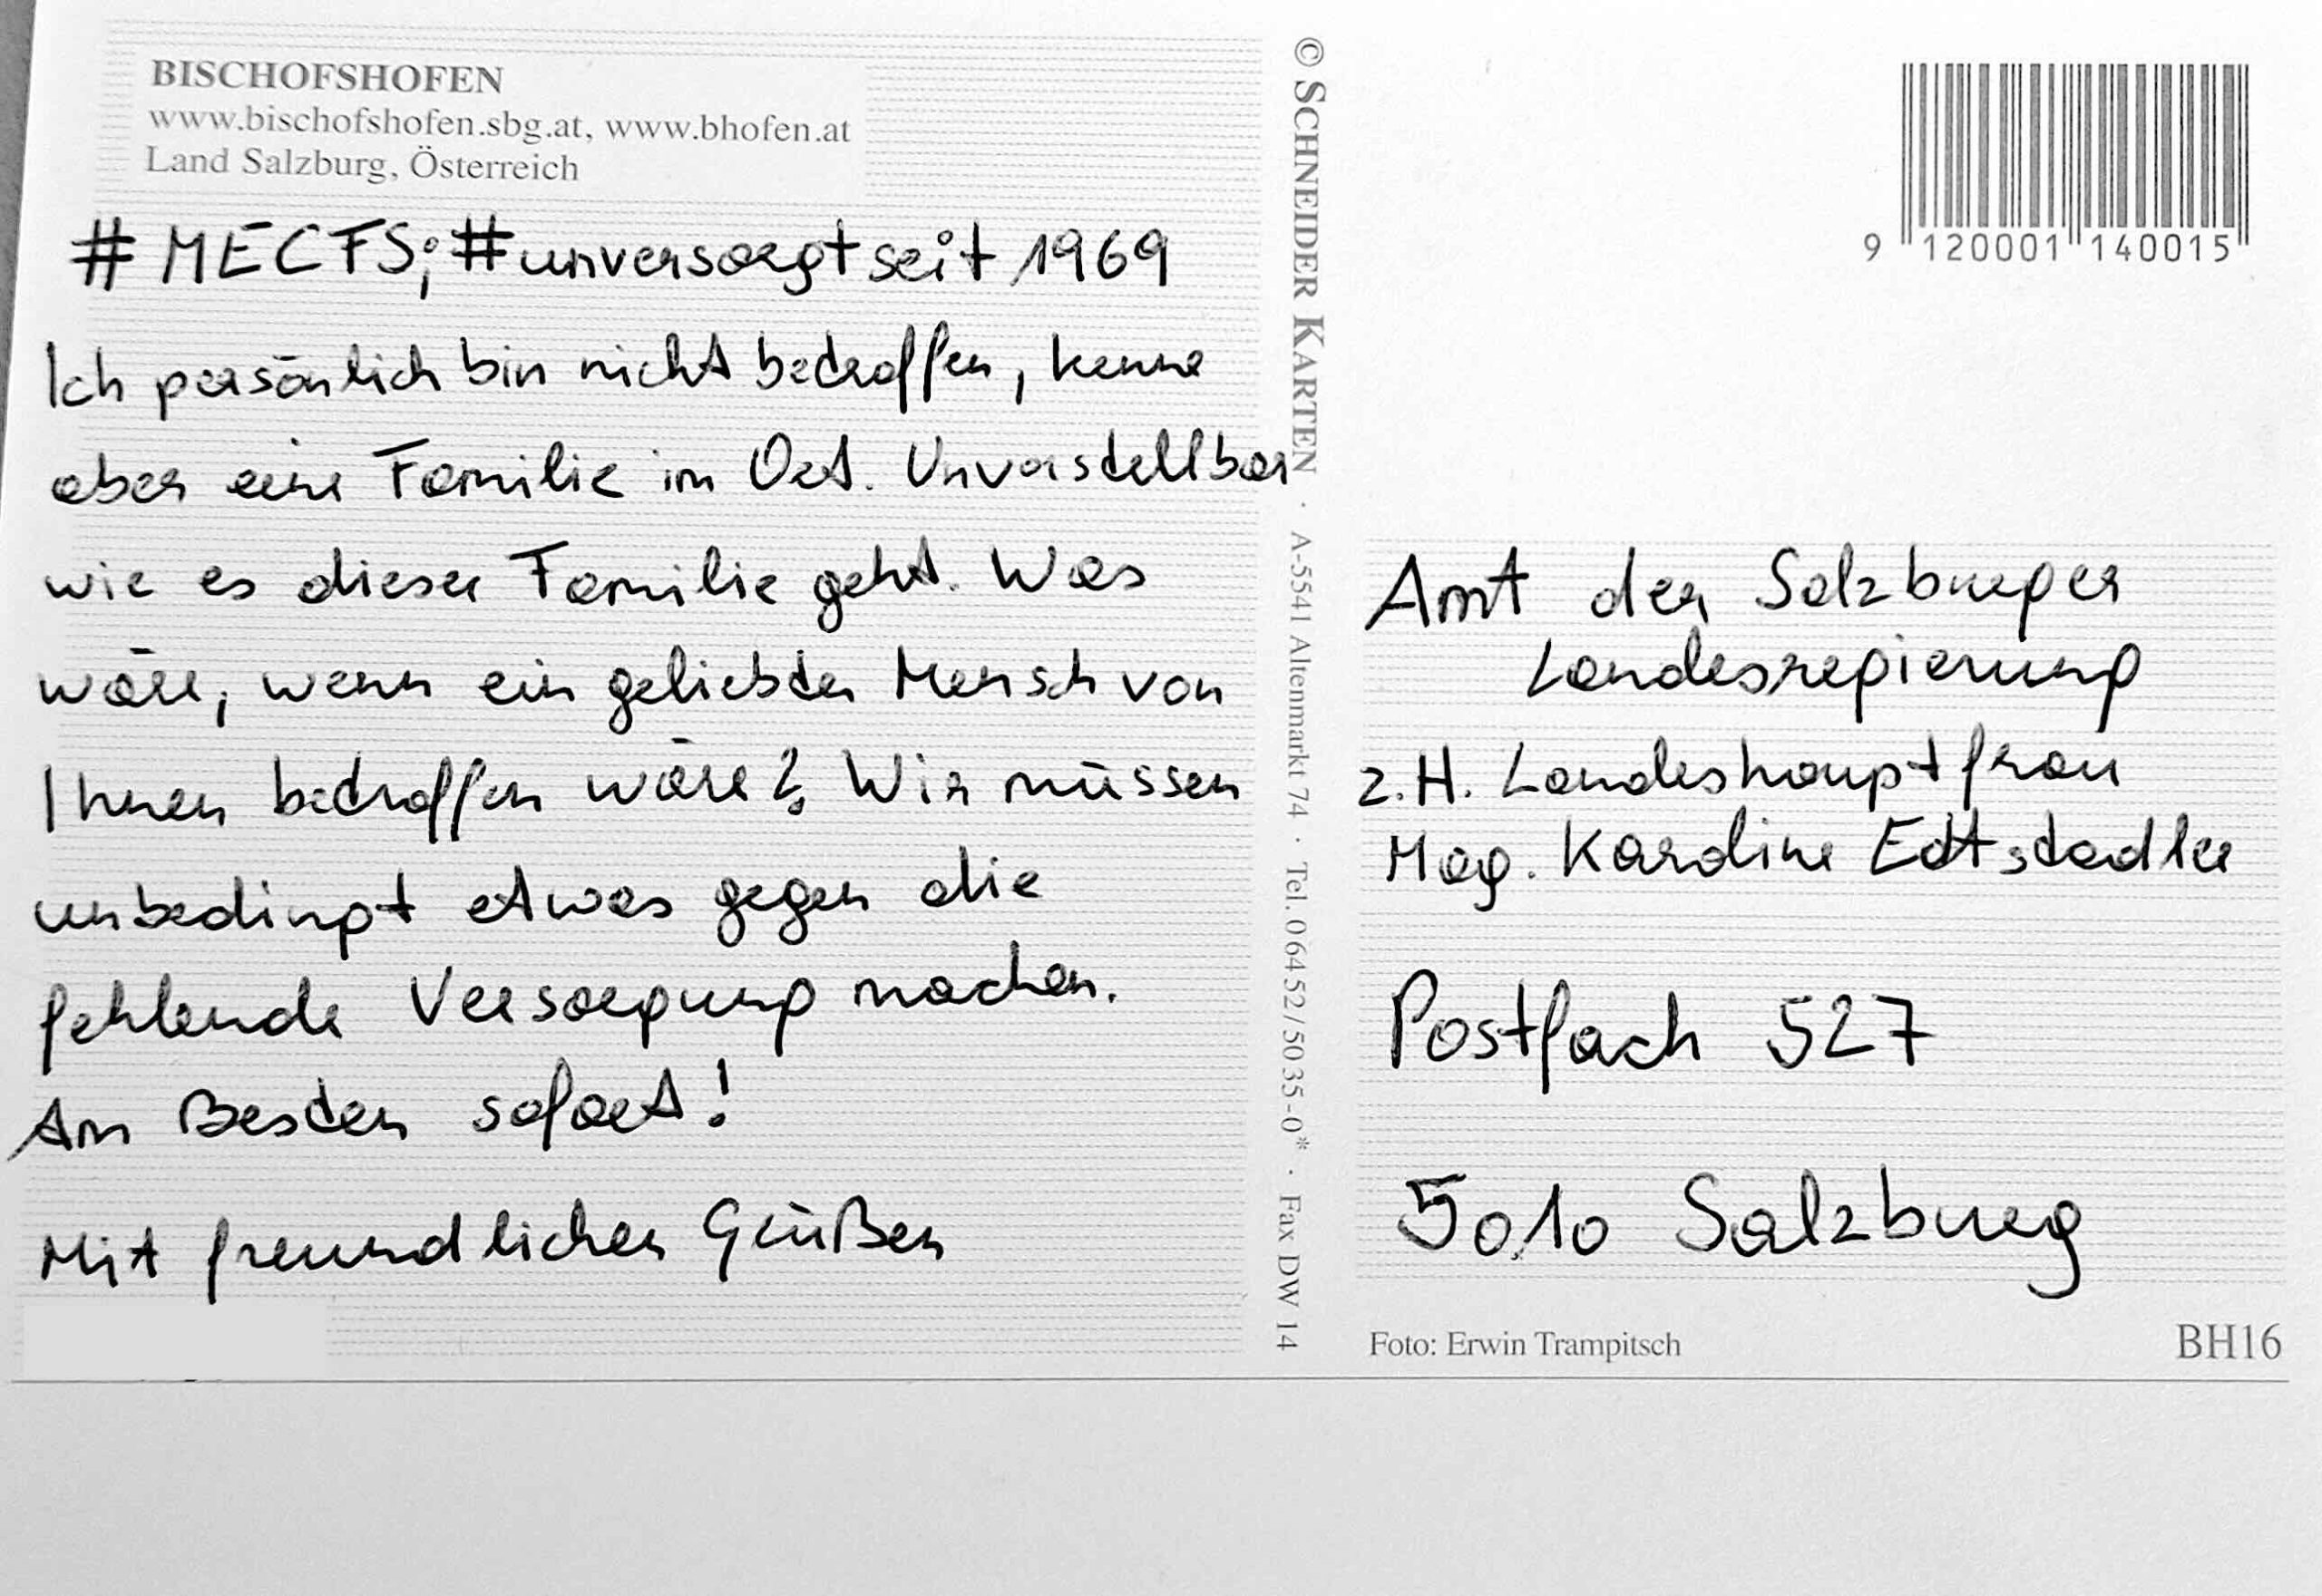 BISCHOFSHOFEN
www.bischofshofen.sbg.at, www.bhofen.at
Land Salzburg, Österreich
#MECFS; #unversorgtseit1969
Ich persönlich bin nicht betroffen, kenne
aber eine Familie im Ort. Unvorstellbar
wie es dieser Familie geht. Was
wäre, wenn ein geliebter Mensch von
Ihnen betroffen wäre? Wir müssen
unbedingt etwas gegen die
fehlende Versorgung machen.
Am Besten sofort!
Mit freundlichen Grüßen
© SCHNEIDER KARTEN · A-5541 Altenmarkt 74 · Tel. 06452/5035-0* · Fax DW 14
9 120001 140015
Amt der Salzburger
Landesregierung
z.H. Landeshauptfrau
Mag. Karoline Edtstadler
Postfach 527
5010 Salzburg
Foto: Erwin Trampitsch
BH16